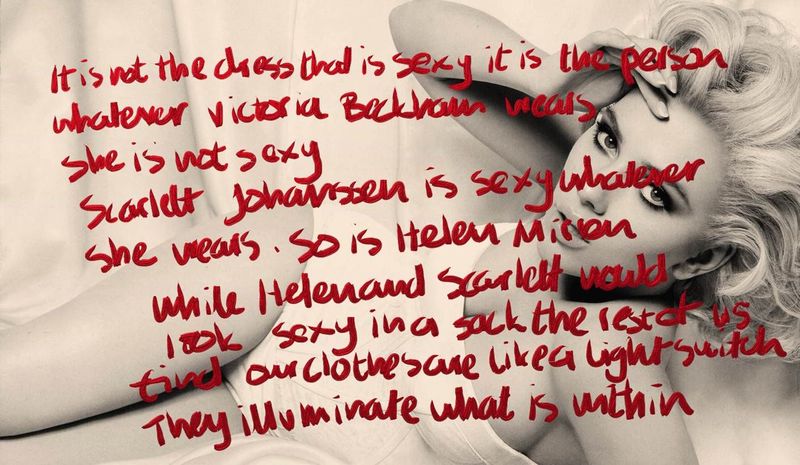 It is not the dress that is sexy it is the person
whatever Victoria Beckham wears
she is not sexy
Scarlett Johanssen is sexy whatever
she wears. so is Helen Mirren
while Helen and Scarlett would
look sexy in a sack the rest of us
find our clothes are like a light switch
They illuminate what is within